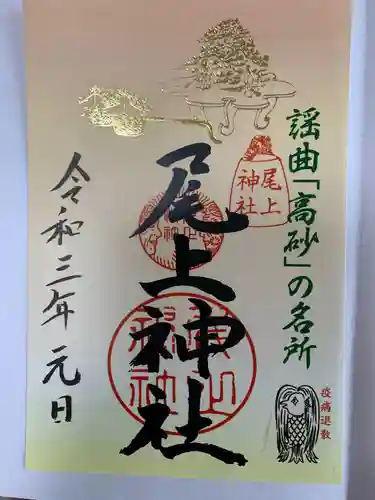 謡曲「高砂」の名所
尾上
神社
尾上神社
令和三年元日
疫病退散